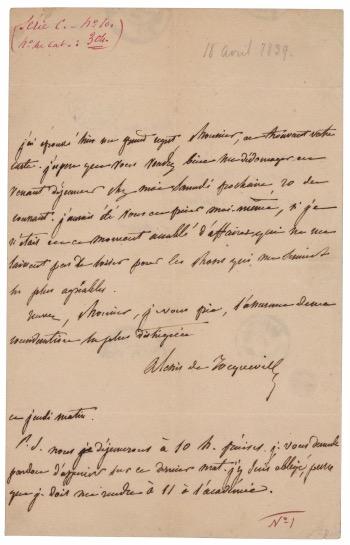 Série C. - No 10.
No de Cat. : 304.
18 avril 1839.
j'ai éprouvé hier un grand regret, Monsieur, en trouvant votre
carte. j'espère que vous voudrez bien me dédomager en
venant déjeuner chez moi Samedi prochain, 20 du
courant. j'aurais été vous en prier moi-même, si je
n'étais en ce moment accablé d'affaires qui ne me
laissent pas de loisir pour les choses qui me seraient
les plus agréables.
Recevez, Monsieur, je vous prie, l'assurance de ma
considération la plus distinguée
Alexis de Tocqueville
ce jeudi matin.
P. S. nous déjeunerons à 10 h. précises. je vous demande
pardon d'appuier sur ce dernier mot. j'y suis obligé, parce
que je dois me rendre à 11 à l'académie.
No 1